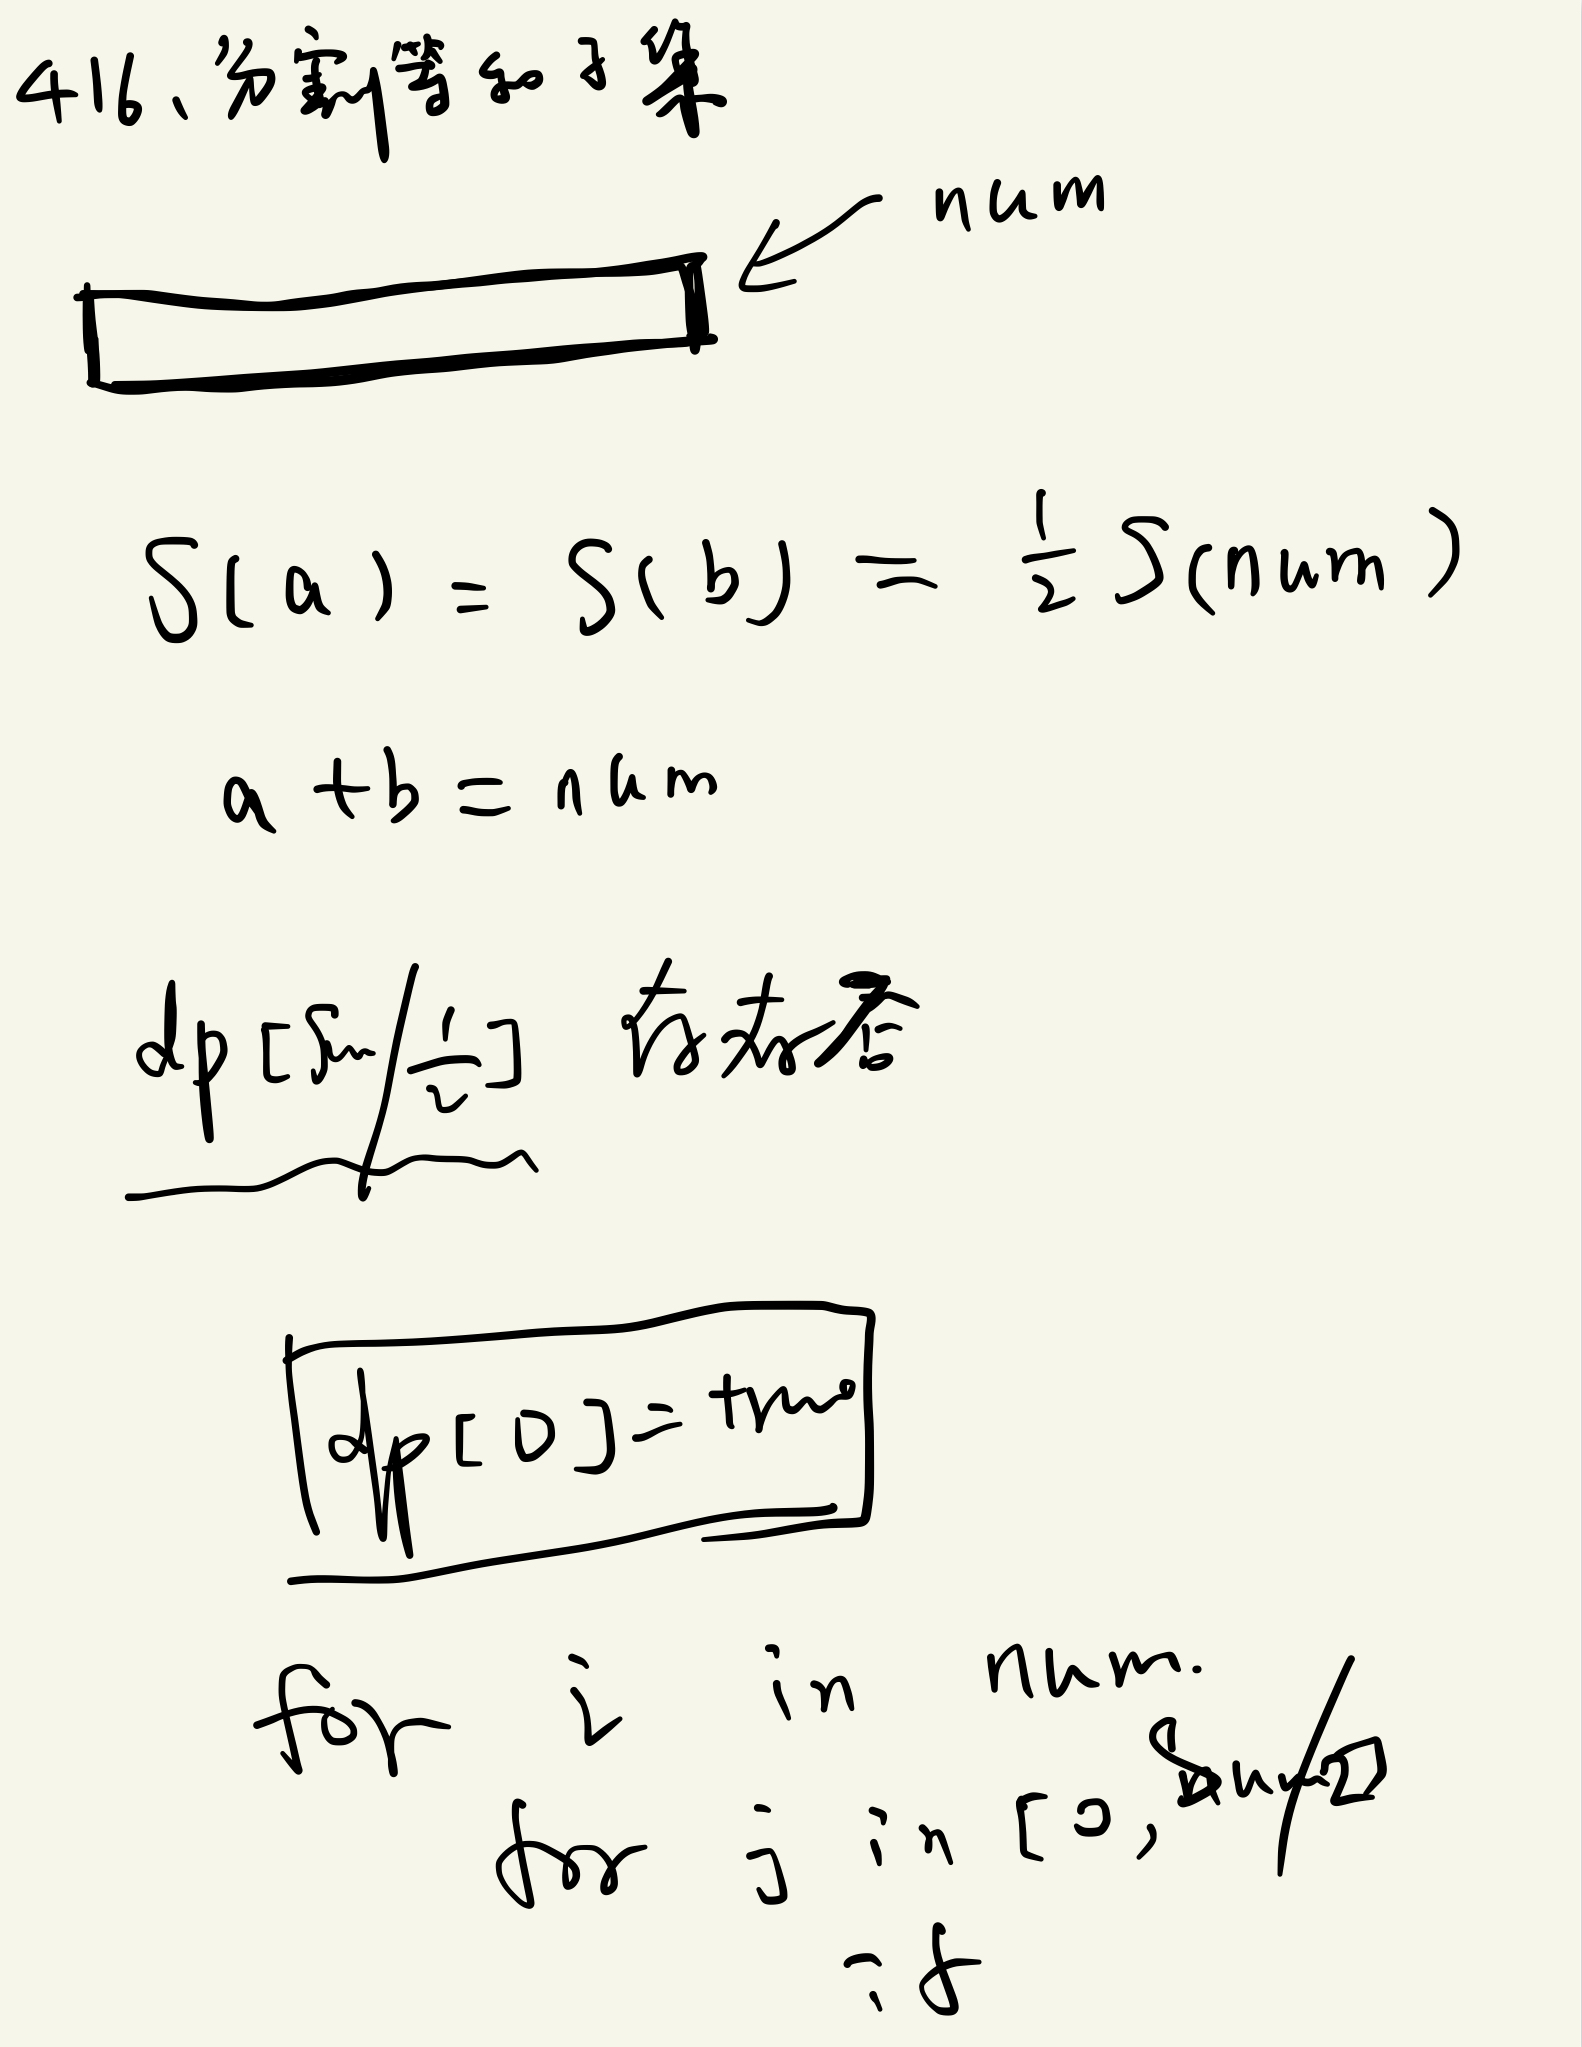 416、分割等和子集
num
S(a) = S(b) = 1/2 S(num)
a + b = num
dp[sum/1/2] 存在否
dp[0] = true
for i in num.
for j in [0, sum/2]
if